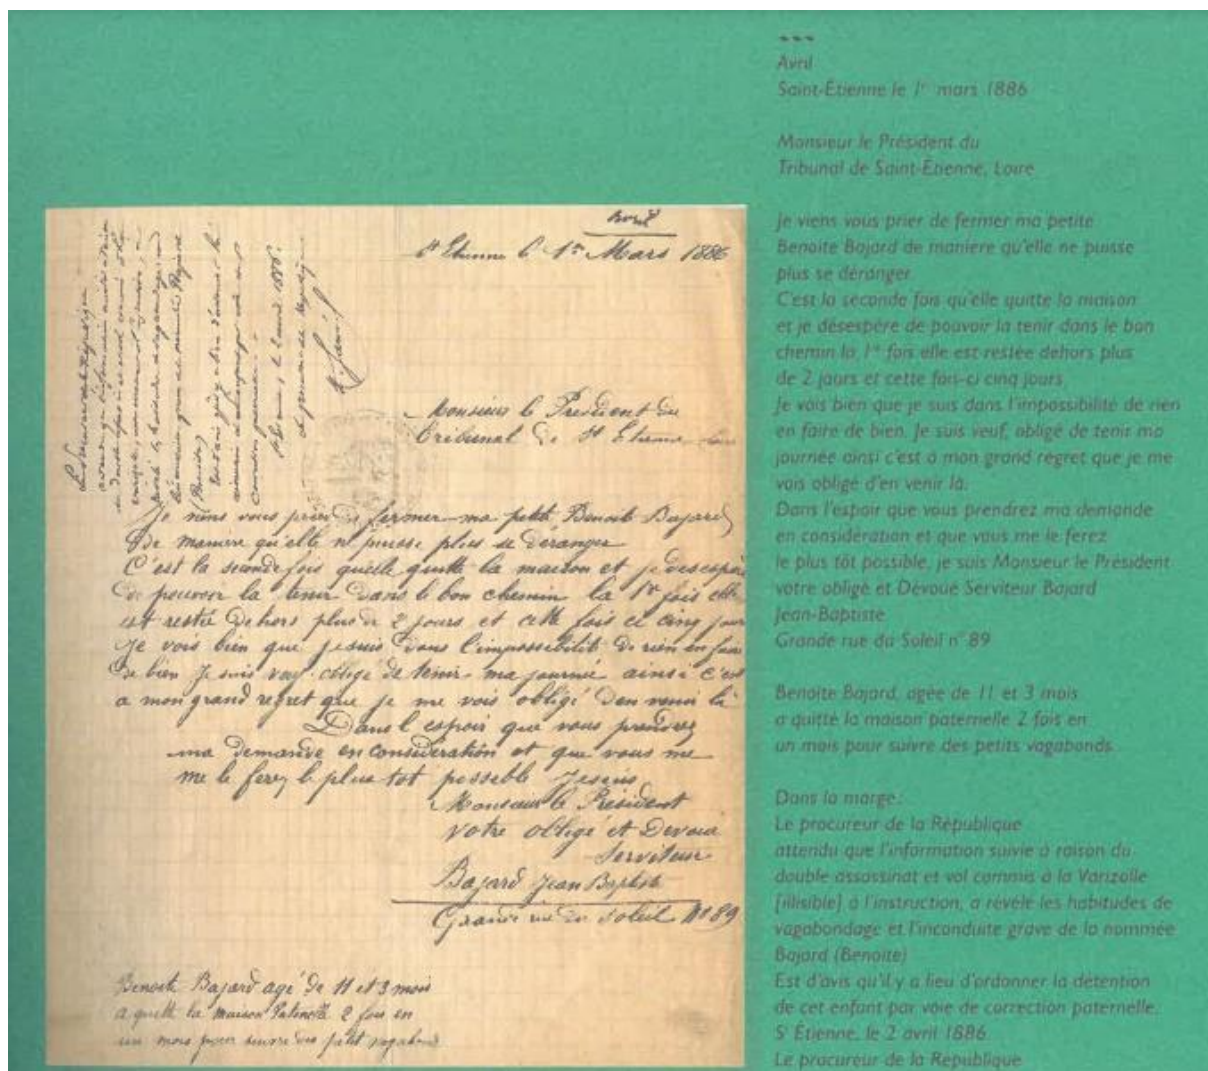 Avril
St Etienne le 1er Mars 1886
Monsieur le President du
Tribunal de St Etienne Loire
Je viens vous prier de fermer ma petite Benoite Bajard
de maniere qu'elle ne puisse plus se deranger
C'est la seconde fois quelle quitte la maison et je desespere
de pouvoir la tenir dans le bon chemin la 1re fois elle
est restée dehors plus de 2 jours et cette fois ci cinq jours
Je vois bien que je suis dans l'impossibilité de rien en faire
de bien Je suis veuf obligé de tenir ma journée ainsi c'est
a mon grand regret que je me vois obligé d'en venir là
Dans l espoir que vous prendrez
ma demande en consideration et que vous me
me le ferez le plus tot possible je suis
Monsieur le Président
votre obligé et Devoué
Serviteur
Bajard Jean Baptiste
Grande rue du Soleil N° 89
Benoite Bajard agé de 11 et 3 mois
a quitté la maison Paternelle 2 fois en
un mois pour suivre des petit vagabond
Le procureur de la République
(Benoite)
correction paternelle.
St Etienne, le 2 avril 1886.
Le procureur de la République
---
Avril
Saint-Étienne le 1er mars 1886
Monsieur le Président du
Tribunal de Saint-Étienne, Loire
Je viens vous prier de fermer ma petite
Benoite Bajard de maniere qu'elle ne puisse
plus se déranger.
C'est la seconde fois qu'elle quitte la maison
et je désespère de pouvoir la tenir dans le bon
chemin la 1re fois elle est restée dehors plus
de 2 jours et cette fois-ci cinq jours.
Je vois bien que je suis dans l'impossibilité de rien
en faire de bien. Je suis veuf, obligé de tenir ma
journée ainsi c'est à mon grand regret que je me
vois obligé d'en venir là.
Dans l'espoir que vous prendrez ma demande
en considération et que vous me le ferez
le plus tôt possible, je suis Monsieur le Président
votre obligé et Dévoué Serviteur Bajard
Jean-Baptiste
Grande rue du Soleil n° 89
Benoîte Bajard, agée de 11 et 3 mois
a quitté la maison paternelle 2 fois en
un mois pour suivre des petits vagabonds.
Dans la marge :
Le procureur de la République
attendu que l'information suivie à raison du
double assassinat et vol commis à la Varizelle
[illisible] à l'instruction, a révélé les habitudes de
vagabondage et l'inconduite grave de la nommée
Bajard (Benoîte)
Est d'avis qu'il y a lieu d'ordonner la détention
de cet enfant par voie de correction paternelle.
St Étienne, le 2 avril 1886.
Le procureur de la République